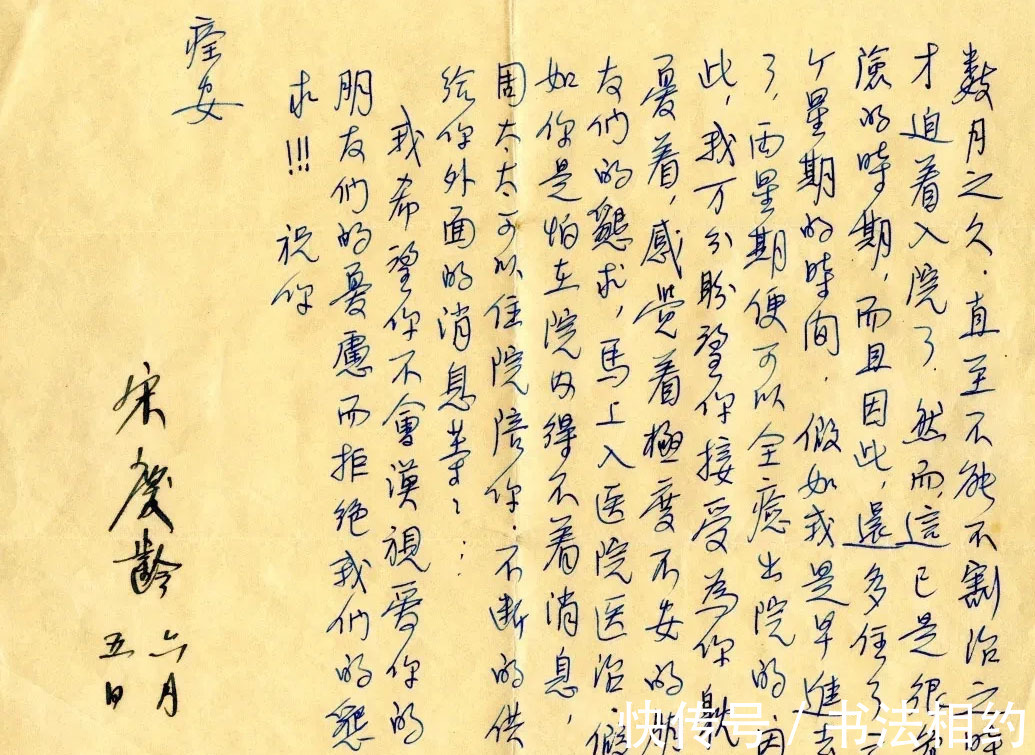 数月之久．直至不能不割治之時
才迫着入院了．然而，這已是很危
險的時期，而且因此，還多住了
个星期的時间．假如我是早進去
了，两星期便可以全癒出院的．因
此，我万分盼望你接受為你
憂着，感覚着極度不安的朋
友们的懇求，馬上入医院医治．假
如你是怕在院内得不着消息，
周太太可以住院陪你．不断的供
给你外面的消息等等⋮
我希望你不會漠視愛你的
朋友们的憂慮而拒绝我们的懇
求!!! 祝你
痊安
宋慶齡
六月
五日
快传号 / 书法相约